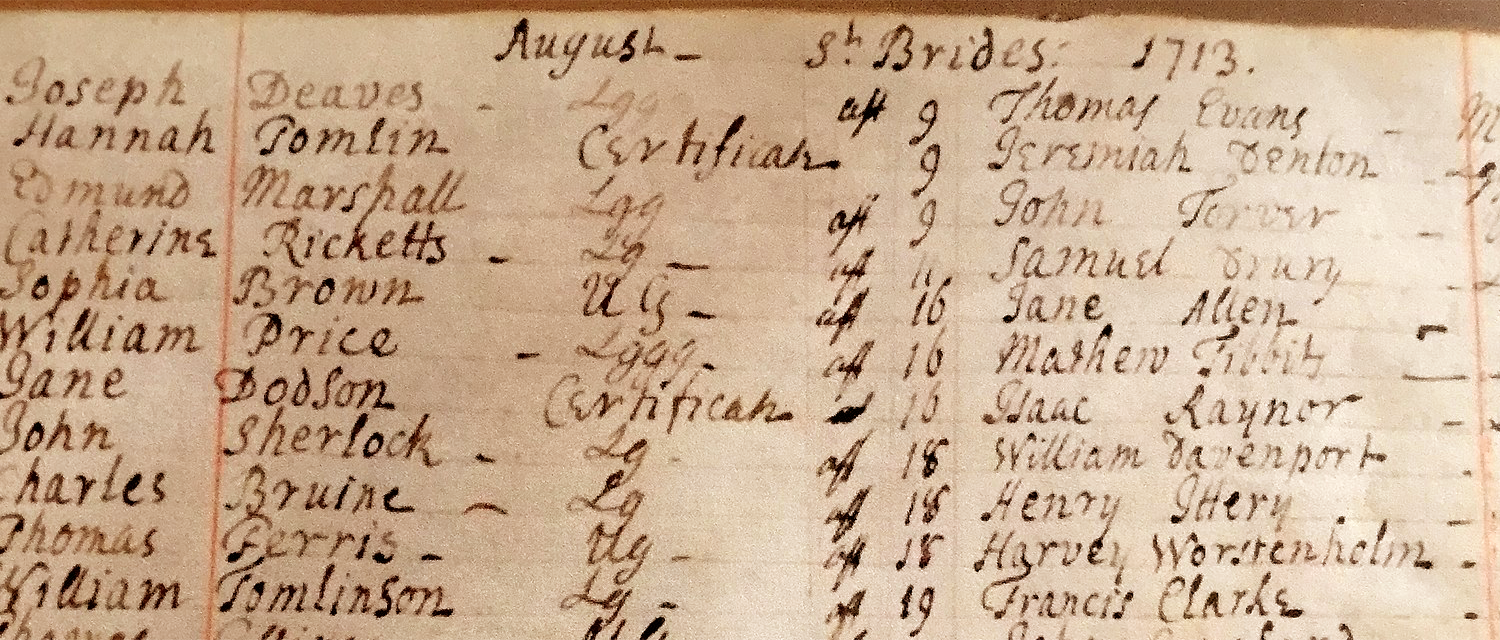 August - St. Brides: 1713.
Joseph Deaves - Lggg aft 9 Thomas Evans -
Hannah Tomlin Certificate 9 Jeremiah Denton -
Edmund Marshall Lgg aft 9 John Torver -
Catherine Ricketts - Lg - aft 11 Samuel Drury -
Sophia Brown UG - aft 16 Jane Allen -
William Price - Lggg - aft 16 Mathew Tibbits -
Jane Dodson Certificate 16 Isaac Raynor -
John Sherlock - Lg - aft 18 William Davenport -
Charles Bruine - Lg aft 18 Henry Ittery -
Thomas Ferris - Ug - aft 18 Harvey Worstenholm -
William Tomlinson Lg - aft 19 Francis Clarke -